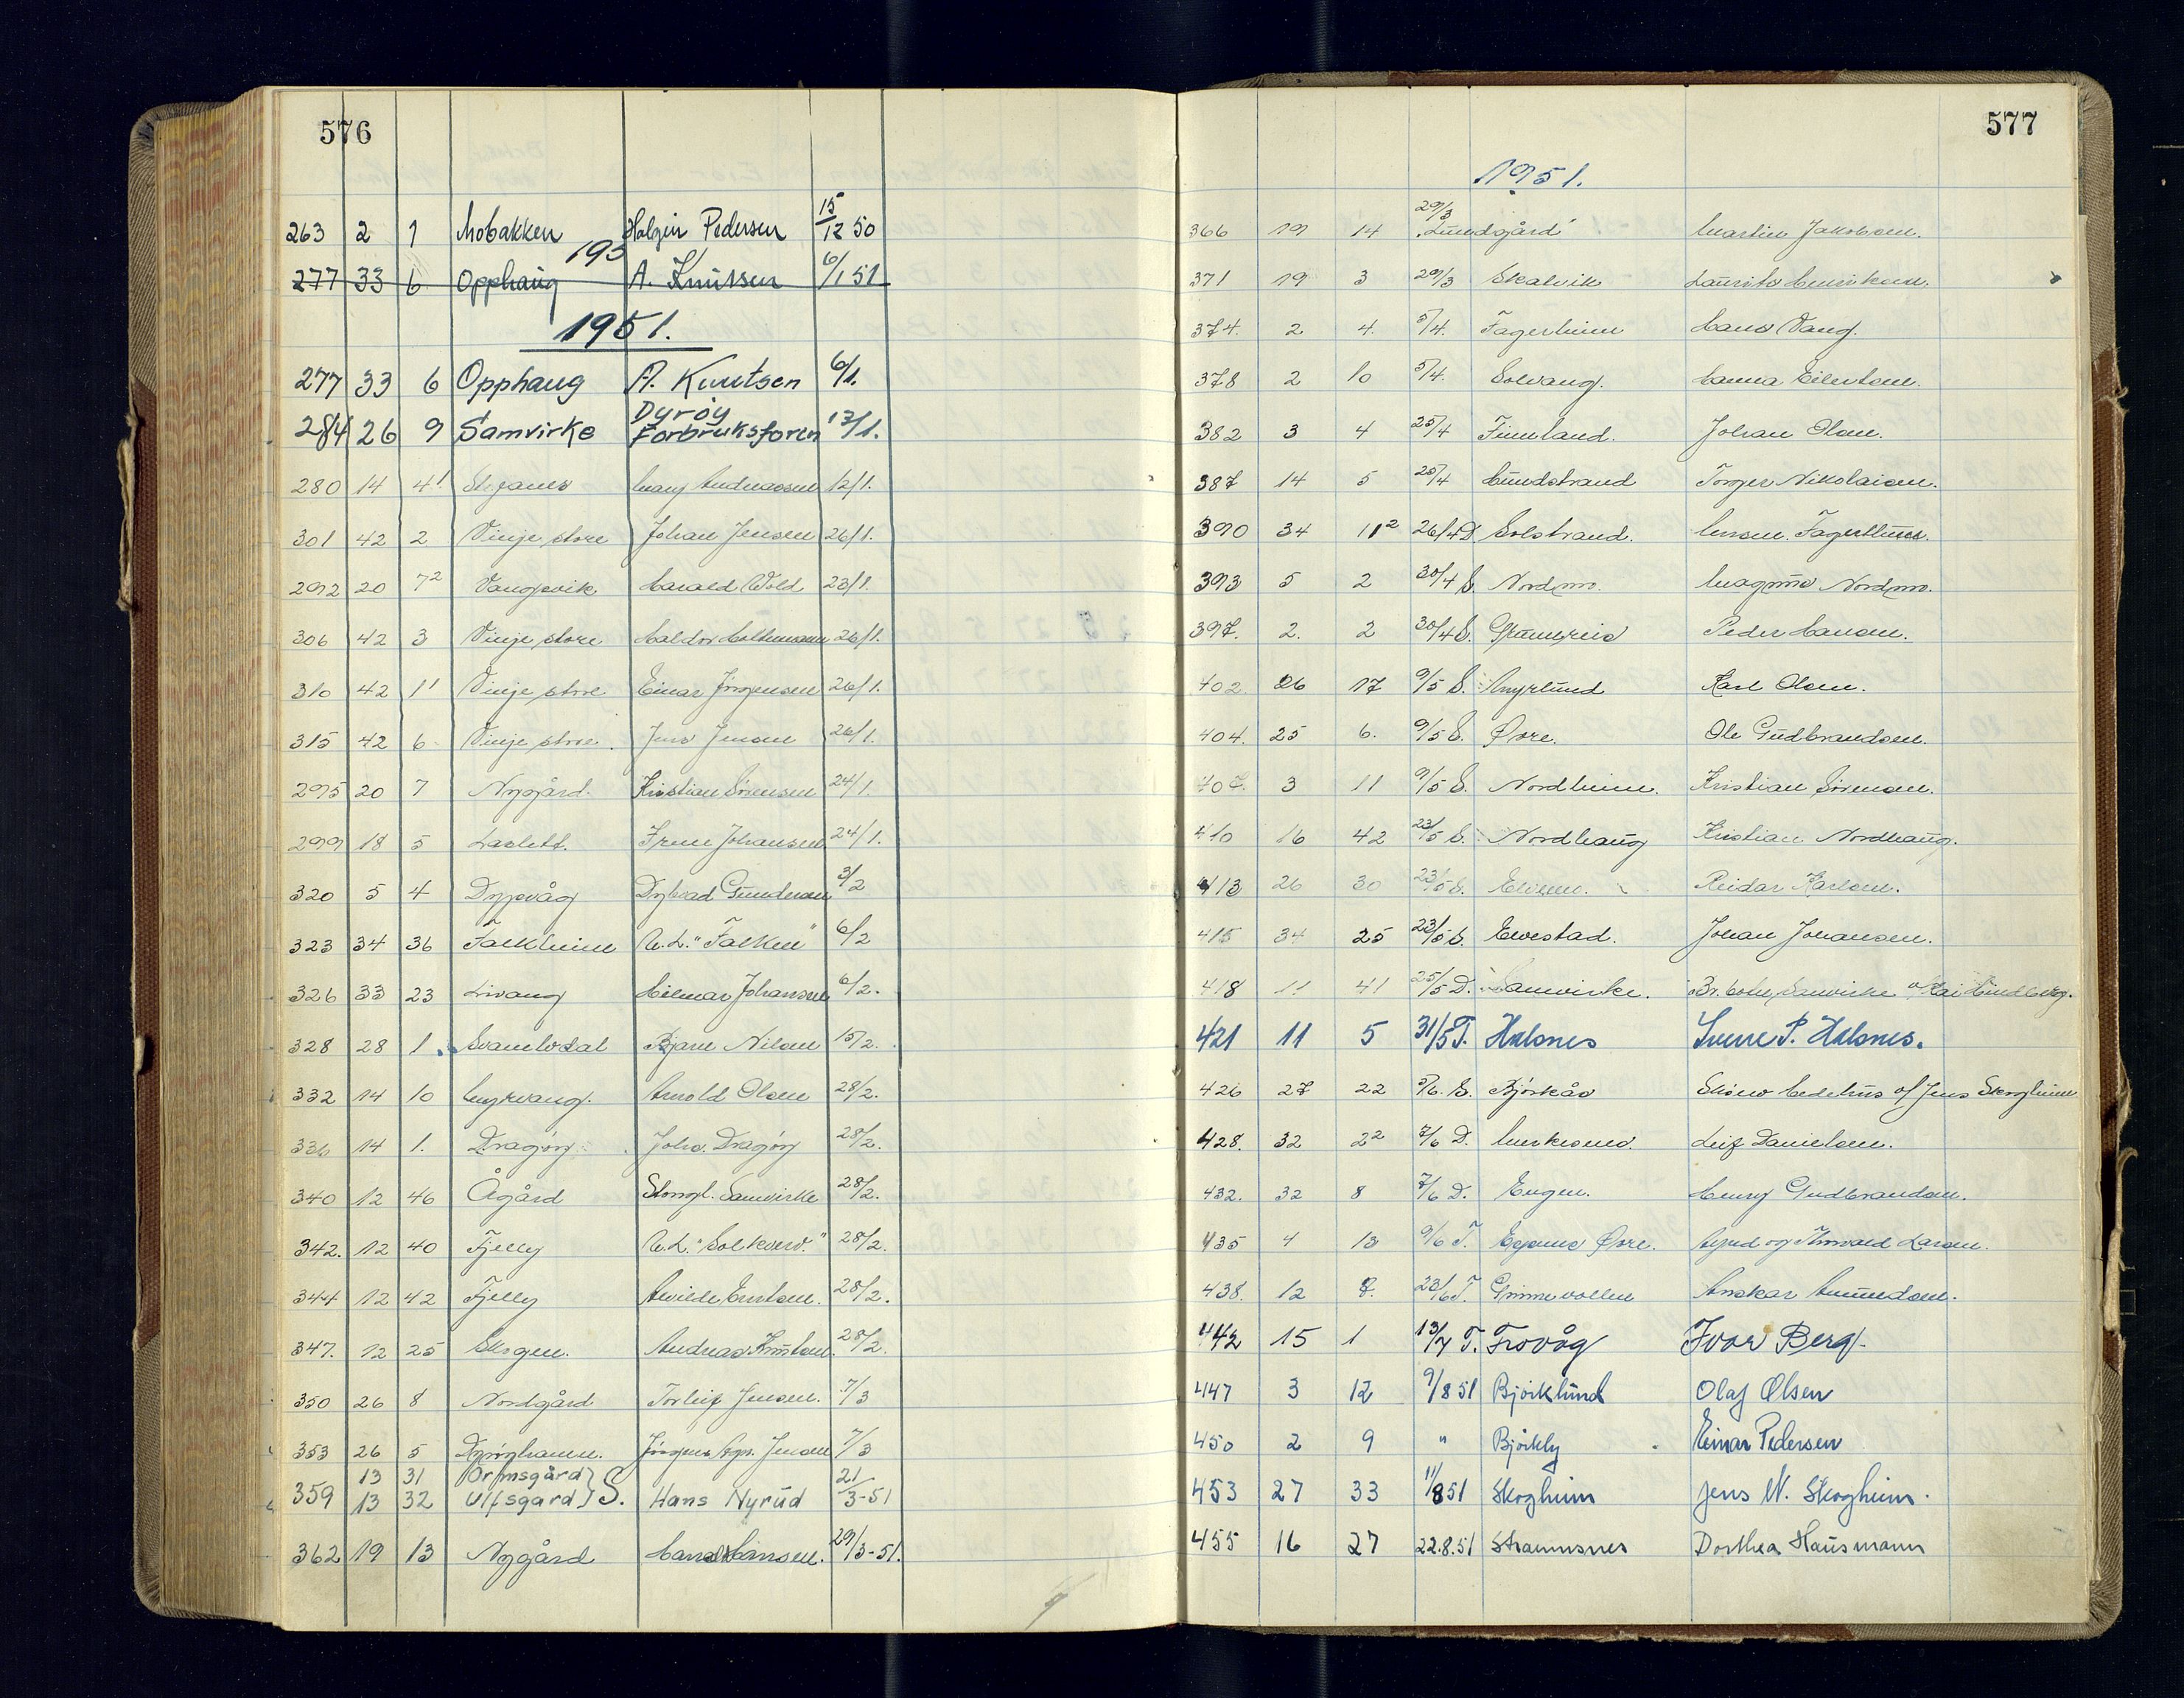 576
263 2 1 Mobakken Holger Pedersen 15/12 50
195
277 33 6 Opphaug A. Knutsen 6/1 51
1951.
277 33 6 Opphaug A. Knutsen 6/1.
284 26 9 Samvirke Dyrøy Forbruksforen 12/1.
280 14 4¹ Andreassen 12/1.
301 42 2 Vinje store Johan Jensen 26/1.
292 20 7² Vangsvik Harald Wold 23/1.
306 42 3 Vinje store Haldor 26/1.
310 42 1¹ Vinje store Einar Jörgensen 26/1.
315 42 6 Vinje store. Jens Jensen 26/1.
295 20 7 Nygård. Kristian Sörensen 24/1.
299 18 5 Laslett. Johansen 24/1.
320 5 4 Gundersen 3/2
323 34 36 Falkheim A.L. "Falken" 6/2
326 33 23 Livang Hilmar Johansen 6/2.
328 28 1. Svanelvdal Bjarne Nilsen 15/2.
332 14 10 Myrvang. Arnold Olsen 28/2.
336 14 1. Dragöy Johs. Dragöy 28/2.
340 12 46 Ågård Stongl. Samvirke 28/2.
342. 12 40 Fjelly A.L. 28/2.
344 12 42 Fjelly 28/2.
347. 12 25 Skogen. Andreas Knutsen. 28/2.
350 26 8 Nordgård Torleif Jensen. 7/3
353 26 5 Dyröyhamn. Jensen 7/3
359 13 31 Ormsgård } S. Hans Nyrud 21/3-51
13 32 Ulfsgård }
362 19 13 Nygård Hans Hansen. 29/3-51.
577
1951.
366 19 14 29/3 Lundgård Martin Jakobsen.
371 19 3 29/3 Skalvik Laurits Henriksen.
374. 2 4. 5/4. Fagerheim Hans Vang.
378 2 10 5/4. Solvang. Hanna Eilertsen.
382 3 4 25/4 Finnland. Johan Olsen.
387 14 5 25/4 Sundstrand Torger Nikolaisen.
390 34 11² 26/4 D. Solstrand. Fagertun
393 5 2 30/4 S. Nordmo. Magnus Nordmo.
397. 2. 2 30/4 S. Peder Hansen.
402. 26 17 9/5 S. Myrlund Karl Olsen.
404. 25 6. 9/5 S. Øvre. Ole Gudbrandsen.
407. 3 11 9/5 S. Nordheim. Kristian Sörensen.
410 16 42 23/5 S. Nordhaug Kristian Nordhaug.
413 26 30 23/5 S. Reidar Karlsen.
415 34 25 23/5 S. Elvestad. Johan Johansen.
418 11 41 25/5 D. Samvirke. Samvirke Lindberg.
421 11 5 31/5 T. Halsnes Sverre P. Halsnes.
426 27 22 5/6. S. Björkås Bedehus v/ Jens Skogheim
428. 32 2² 7/6 D. Leif Danielsen.
432. 32 8 7/6 D. Engen. Henry Gudbrandsen.
435 4 13 9/6 T. Øvre. og Thorvald Larsen.
438. 12 7. 23/6 T. Grimsvollen Anskar Amundsen.
442 15 1 13/7 T. Trovåg Ivar Berg.
447 3 12 9/8 51 Björklund Olaf Olsen
450 2 9 " Björkly Einar Pedersen
453 27 33 11/8 51 Skogheim Jens N. Skogheim.
455 16 27 22.8.51 Straumsnes Dorthea Hausmann